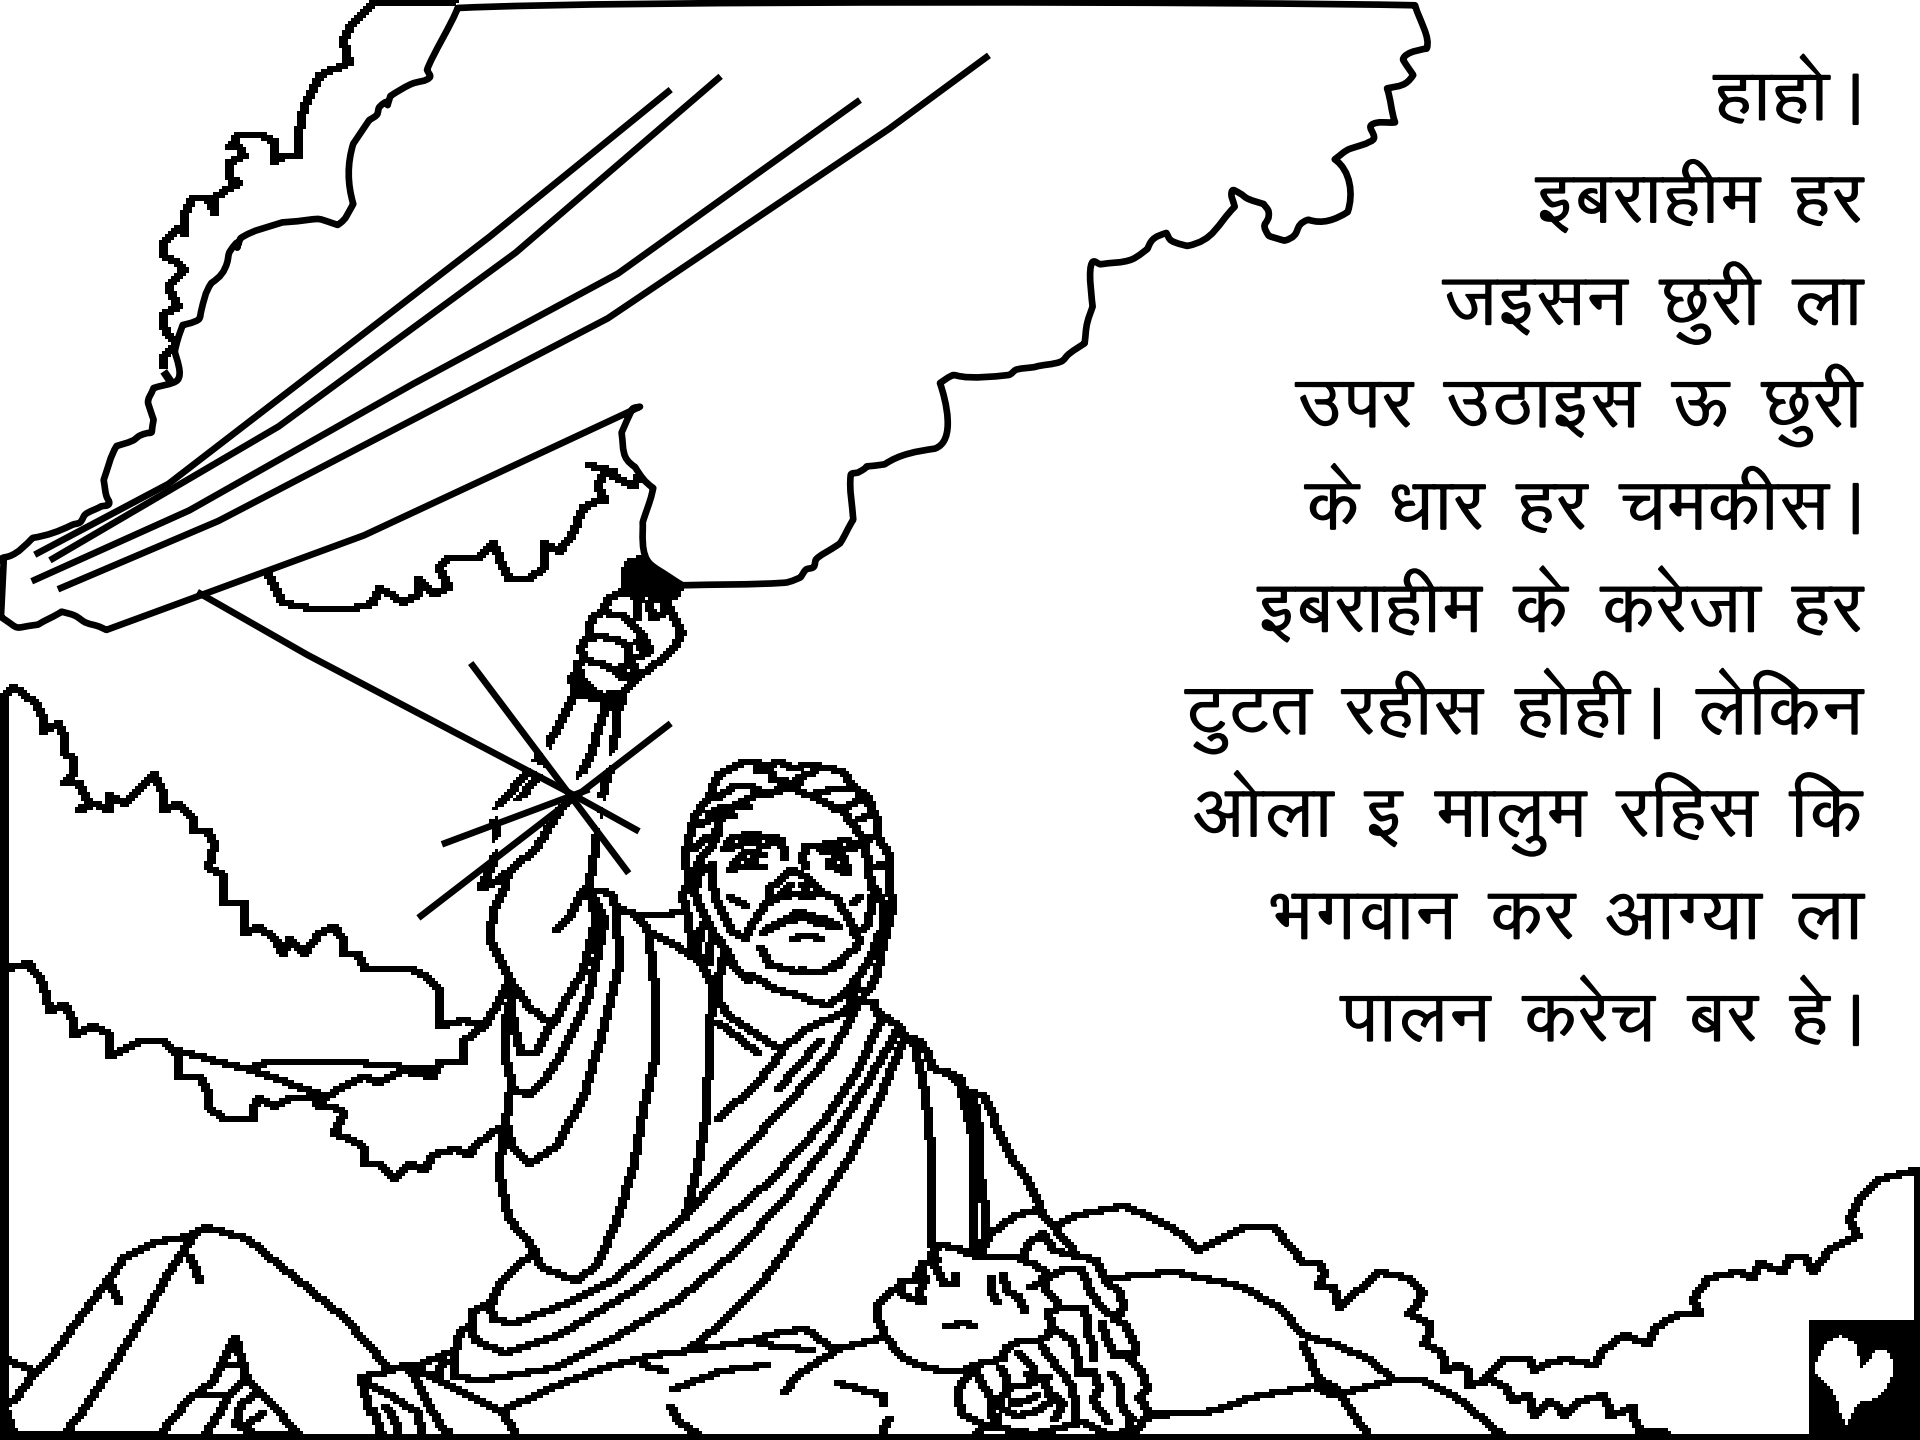 हाहो।
इबराहीम हर
जइसन छुरी ला
उपर उठाइस ऊ छुरी
के धार हर चमकीस।
इबराहीम के करेजा हर
टुटत रहीस होही। लेकिन
ओला इ मालुम रहिस कि
भगवान कर आग्या ला
पालन करेच बर हे।